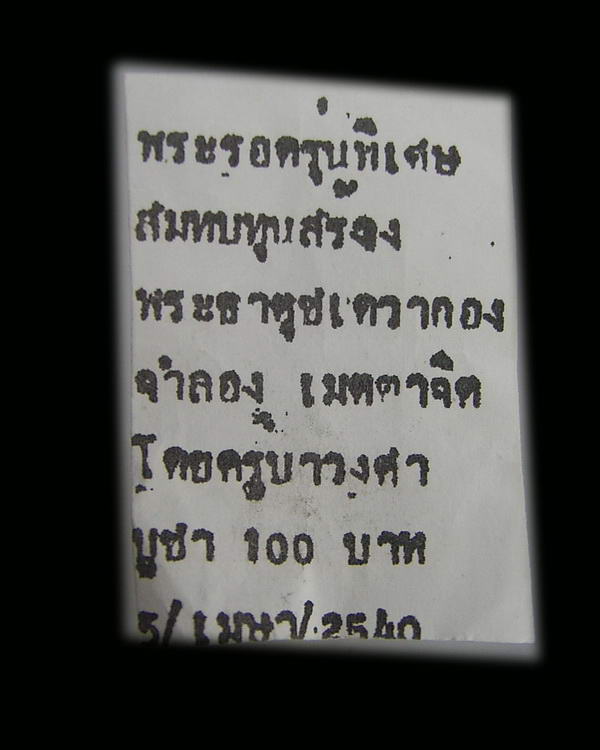 พระรอดรุ่นพิเศษ
สมทบทุนสร้าง
พระธาตุชเวดากอง
จำลอง เมตตาจิต
โดยครูบาวงศา
บูชา 100 บาท
5/เมษา/2540